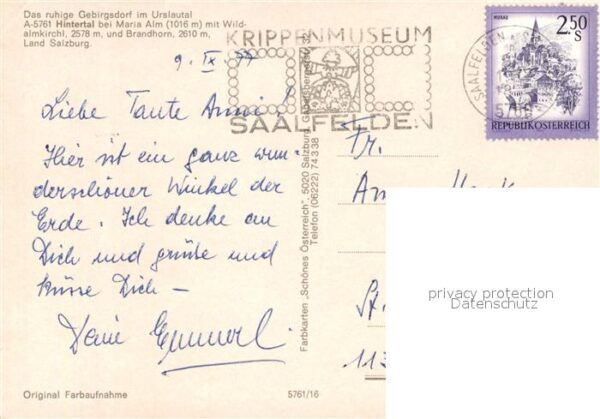 Das ruhige Gebirgsdorf im Urslautal
A-5761 Hintertal bei Maria Alm (1016 m) mit Wild-
almkirchl, 2578 m, und Brandhorn, 2610 m,
Land Salzburg.
KRIPPENMUSEUM
SAALFELDEN
SAALFELDEN
MURAU
2.50
S
REPUBLIK ÖSTERREICH
9. IX 77
Liebe Tante Anni!
Hier ist ein ganz wun
derschöner Winkel der
Erde. Ich denke an
Dich und grüße und
küsse Dich –
Dein
Fr.
St.
113
Farbkarten „Schönes Österreich", 5020 Salzburg,
Telefon (06222) 74 3 38
privacy protection
Datenschutz
Original Farbaufnahme
5761/16